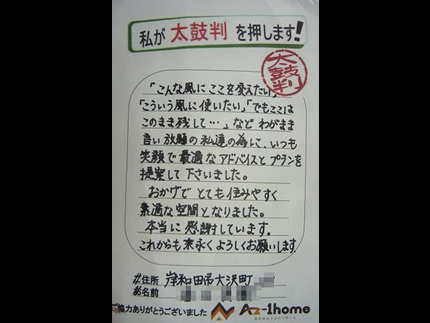 私が 太鼓判 を押します!
太鼓判
「こんな風に ここを変えたい」
「こういう風に使いたい」「でもここは
このまま残して…」など わがまま
言い放題の私達の為に、いつも
笑顔で最適なアドバイスとプランを
提案して下さいました。
おかげで とても住みやすく
素適な空間となりました。
本当に 感謝しています。
これからも末永くよろしくお願いします
住所 岸和田市大沢町
名前
ご協力ありがとうございました
Az-1home